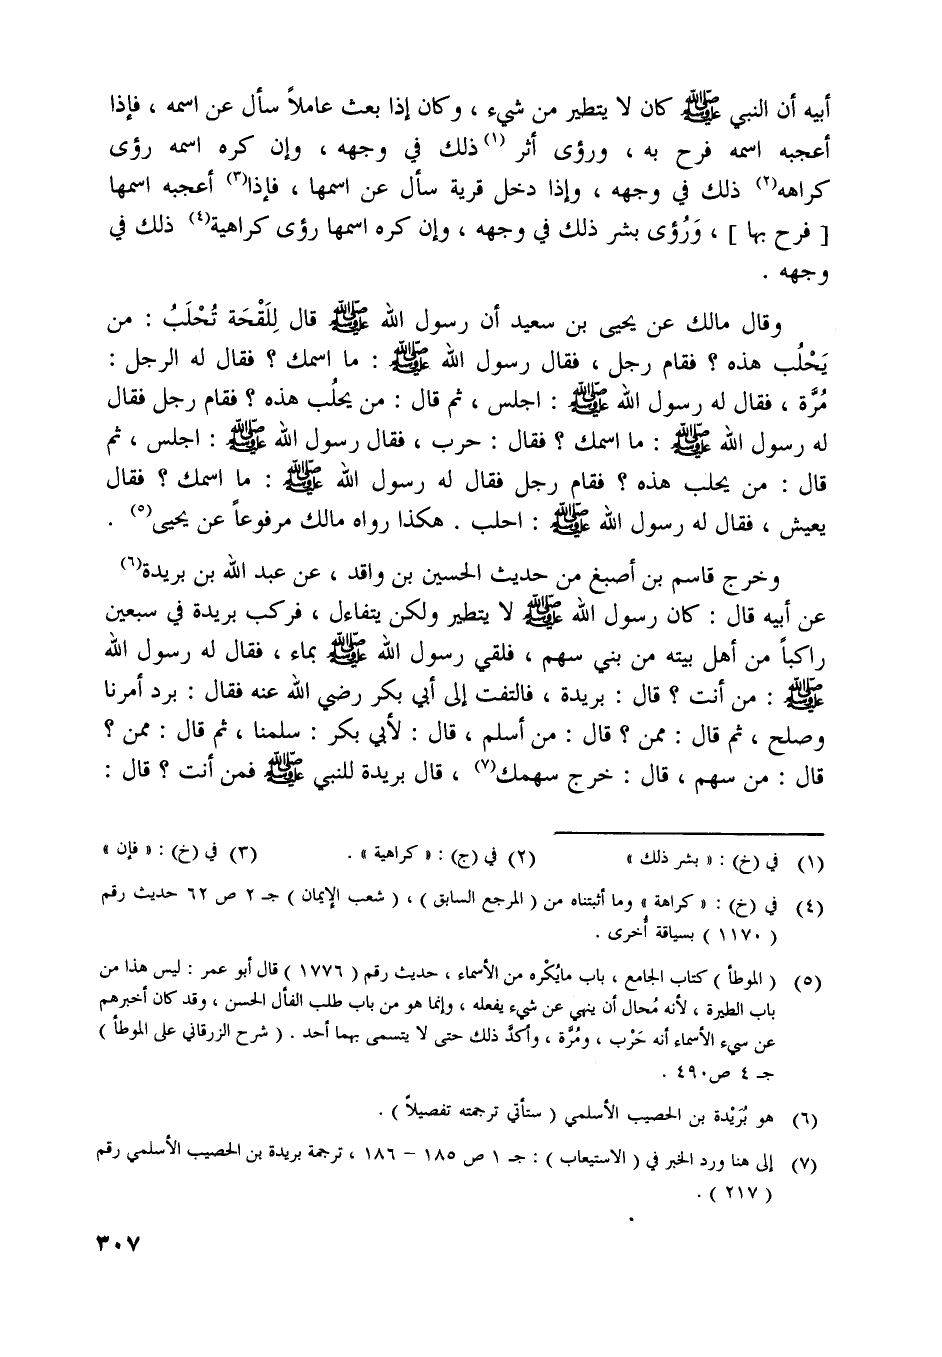 أبيه أن النبي ﷺ كان لا يتطير من شيء ، وكان إذا بعث عاملاً سأل عن اسمه ، فإذا
أعجبه اسمه فرح به ، ورؤى أثر (١) ذلك في وجهه ، وإن كره اسمه رؤى
كراهه(٢) ذلك في وجهه ، وإذا دخل قرية سأل عن اسمها ، فإذا(٣) أعجبه اسمها
[ فرح بها ] ، وَرُؤى بشر ذلك في وجهه ، وإن كره اسمها رؤى كراهية(٤) ذلك في
وجهه .
وقال مالك عن يحيى بن سعيد أن رسول الله ﷺ قال لِلَقْحَة تُحْلَبُ : من
يَحْلُب هذه ؟ فقام رجل ، فقال رسول الله ﷺ : ما اسمك ؟ فقال له الرجل :
مُرَّة ، فقال له رسول الله ﷺ : اجلس ، ثم قال : من يحلُب هذه ؟ فقام رجل فقال
له رسول الله ﷺ : ما اسمك ؟ فقال : حرب ، فقال رسول الله ﷺ : اجلس ، ثم
قال : من يحلب هذه ؟ فقام رجل فقال له رسول الله ﷺ : ما اسمك ؟ فقال
يعيش ، فقال له رسول الله ﷺ : احلب . هكذا رواه مالك مرفوعاً عن يحيى(٥) .
وخرج قاسم بن أصبغ من حديث الحسين بن واقد ، عن عبد الله بن بريدة(٦)
عن أبيه قال : كان رسول الله ﷺ لا يتطير ولكن يتفاءل ، فركب بريدة في سبعين
راكباً من أهل بيته من بني سهم ، فلقي رسول الله ﷺ بماء ، فقال له رسول الله
ﷺ : من أنت ؟ قال : بريدة ، فالتفت إلى أبي بكر رضي الله عنه فقال : برد أمرنا
وصلح ، ثم قال : ممن ؟ قال : من أسلم ، قال : لأبي بكر : سلمنا ، ثم قال : ممن ؟
قال : من سهم ، قال : خرج سهمك(٧) ، قال بريدة للنبي ﷺ فمن أنت ؟ قال :
(١) في (خ) : « بشر ذلك » (٢) في (ج) : « كراهية » . (٣) في (خ) : « فإن »
(٤) في (خ) : « كراهة » وما أثبتناه من ( المرجع السابق ) ، ( شعب الإيمان ) جـ ٢ ص ٦٢ حديث رقم
( ١١٧٠ ) بسياقة أُخرى .
(٥) ( الموطأ ) كتاب الجامع ، باب مايُكْره من الأسماء ، حديث رقم ( ١٧٧٦ ) قال أبو عمر : ليس هذا من
باب الطيرة ، لأنه مُحال أن ينهي عن شيء يفعله ، وإنما هو من باب طلب الفأل الحسن ، وقد كان أخبرهم
عن سيء الأسماء أنه حَرْب ، ومُرَّة ، وأكدَّ ذلك حتى لا يتسمى بهما أحد . ( شرح الزرقاني على الموطأ )
جـ ٤ ص٤٩٠ .
(٦) هو بُرَيْدة بن الحصيب الأسلمي ( ستأتي ترجمته تفصيلاً ) .
(٧) إلى هنا ورد الخبر في ( الاستيعاب ) : جـ ١ ص ١٨٥ – ١٨٦ ، ترجمة بريدة بن الحصيب الأسلمي رقم
( ٢١٧ ) .
٣٠٧